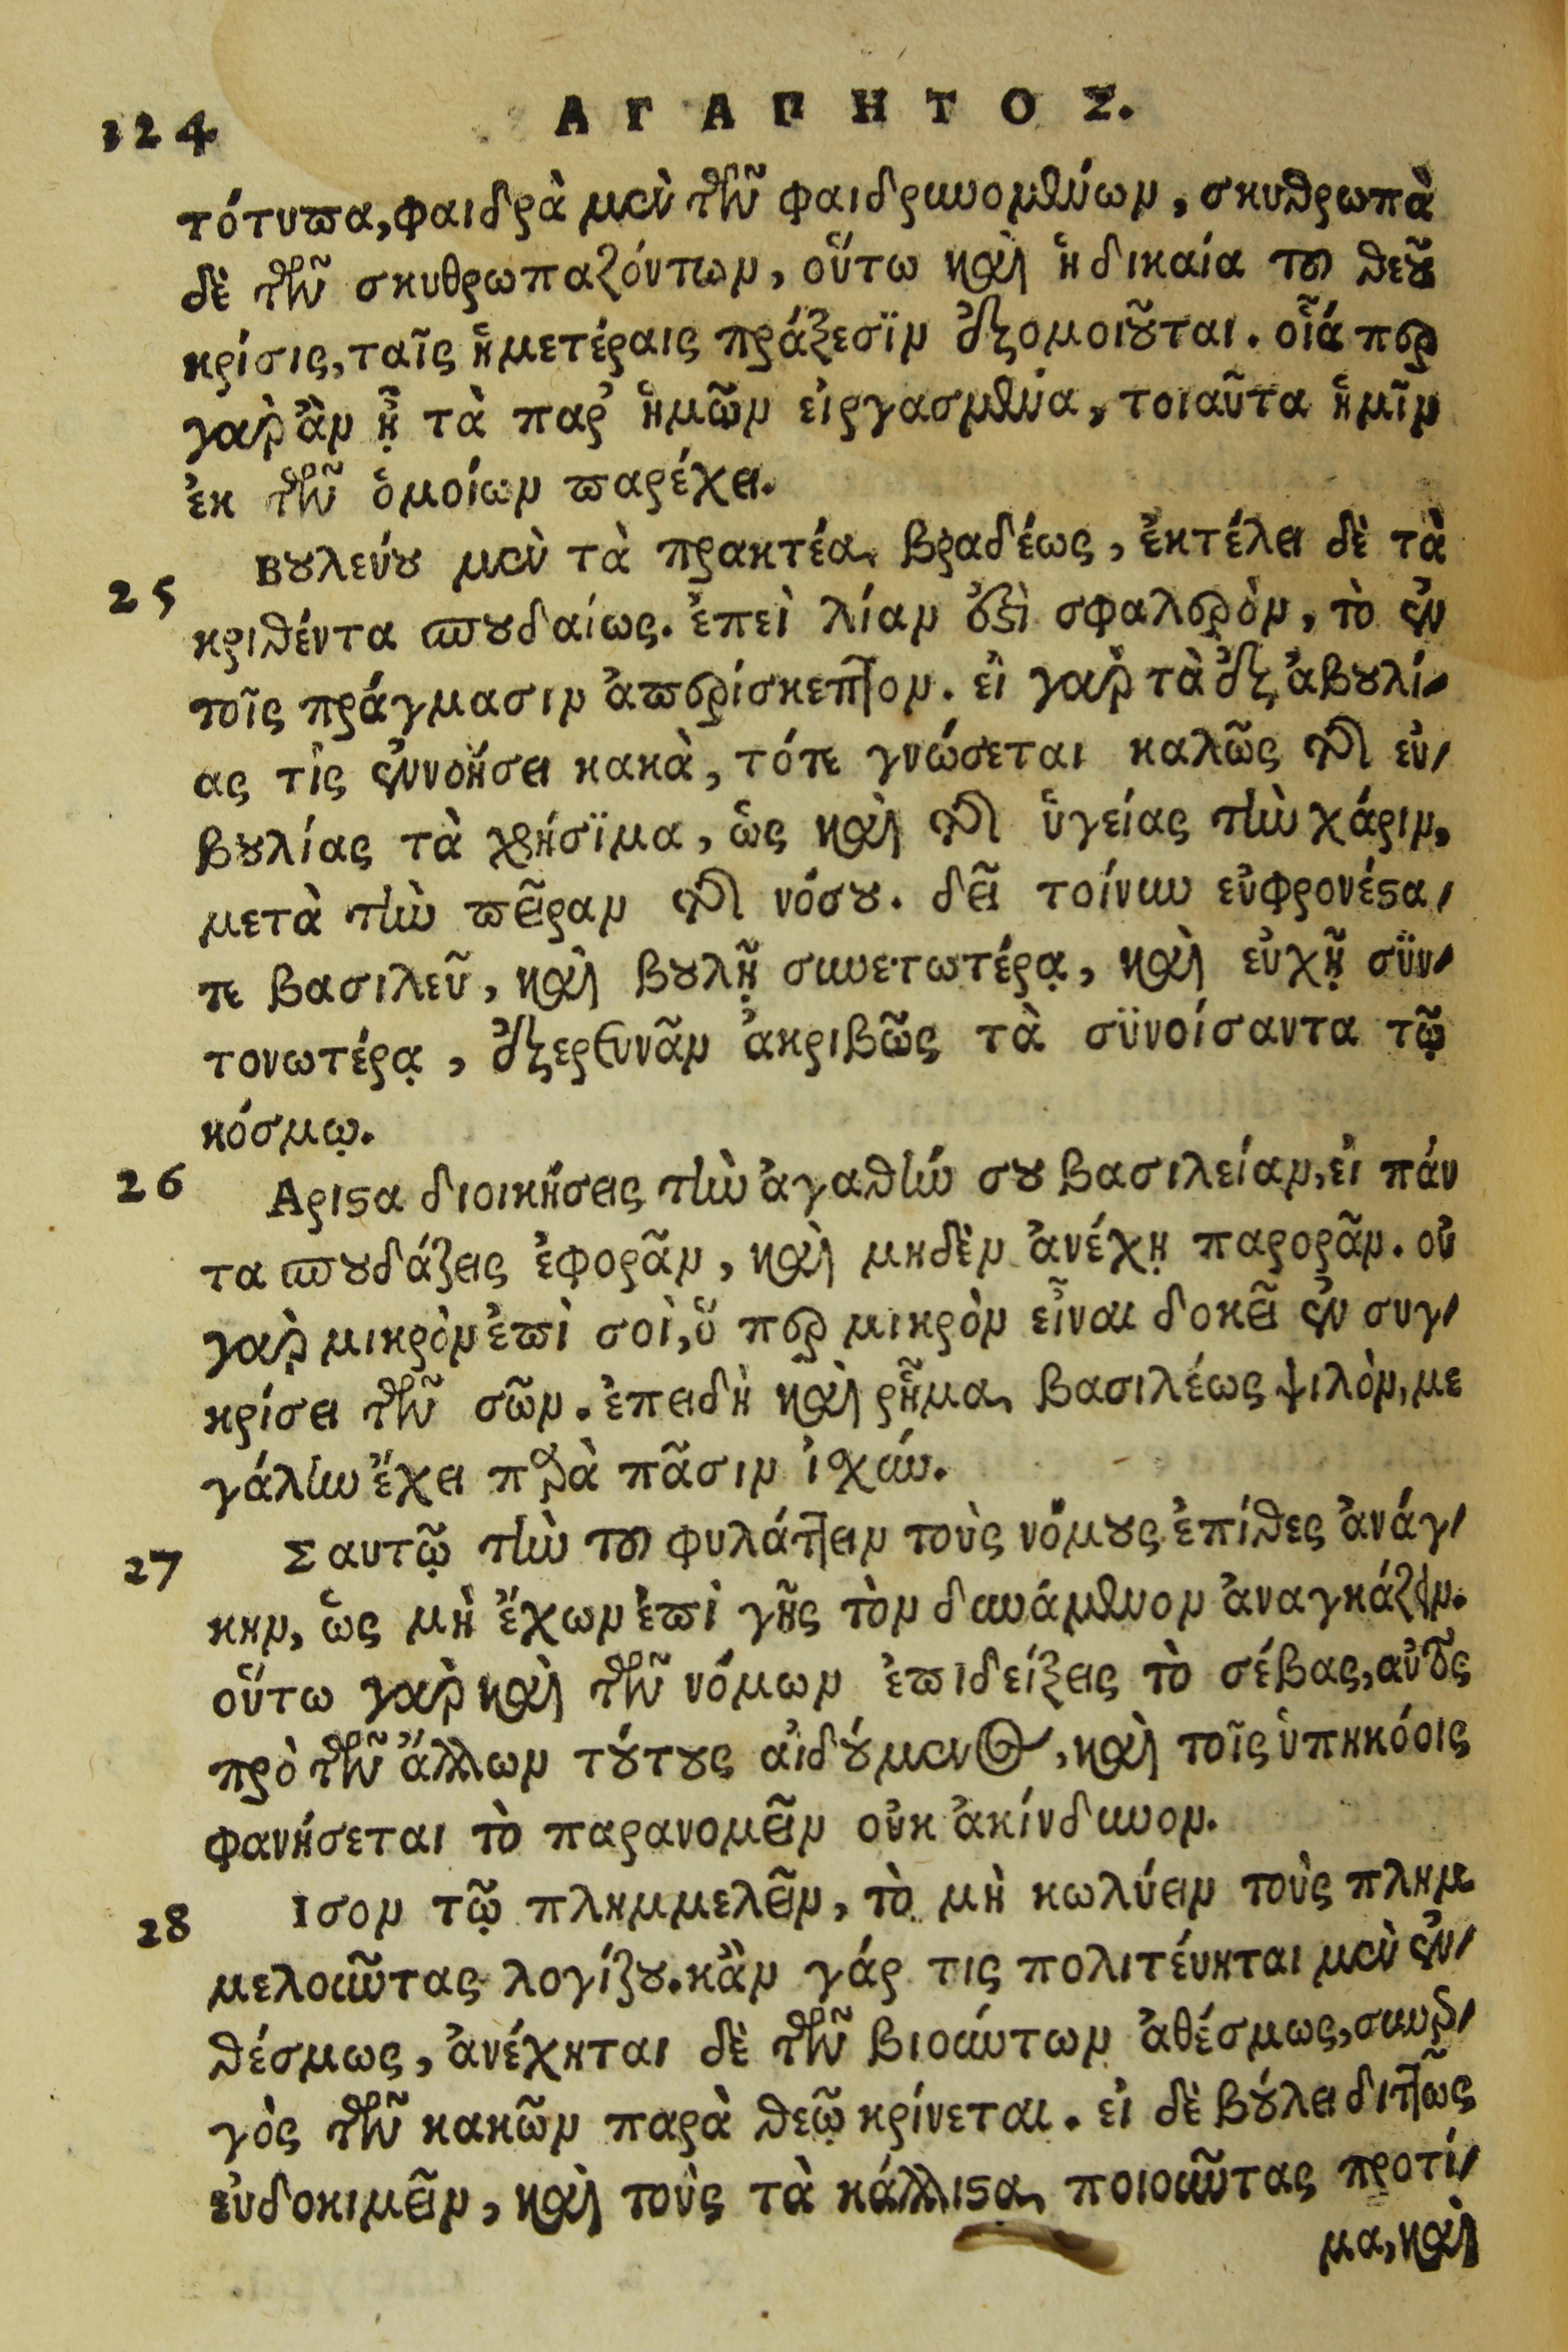 124 ΑΓΑΠΗΤΟΣ.
τότυπα, φαιδρὰ μὲν τῶν φαιδρυνομένων, σκυθρωπὰ
δὲ τῶν σκυθρωπαζόντων, οὕτω καὶ ἡ δικαία τοῦ θεοῦ
κρίσις, ταῖς ἡμετέραις πράξεσϊν ἐξομοιοῦται. οἷά περ
γαρ ἂν ᾖ τὰ παρ' ἡμῶν εἰργασμένα, τοιαῦτα ἡμῖν
ἐκ τῶν ὁμοίων παρέχει.
25 Βουλεύου μὲν τὰ πρακτέα βραδέως, ἐκτέλει δὲ τὰ
κριθέντα σπουδαίως. ἐπεὶ λίαν ἐστὶ σφαλερὸν, τὸ ἐν
τοῖς πράγμασιν ἀπερίσκεπτον. εἰ γαρ τὰ ἐξ ἀβουλί-
ας τὶς ἐννοήσει κακὰ, τότε γνώσεται καλῶς τῆς εὐ-
βουλίας τὰ χρήσϊμα, ὡς καὶ τῆς ὑγείας τὴν χάριν,
μετὰ τὴν πεῖραν τῆς νόσου. δεῖ τοίνυν εὐφρονέστα-
τε βασιλεῦ, καὶ βουλῇ συνετωτέρᾳ, καὶ εὐχῇ σϋν-
τονωτέρᾳ, ἐξερευνᾶν ἀκριβῶς τὰ σϋνοίσαντα τῷ
κόσμῳ.
26 Αριστα διοικήσεις τὴν ἀγαθήν σου βασιλείαν, εἰ πάν
τα σπουδάζεις ἐφορᾶν, καὶ μηδὲν ἀνέχῃ παρορᾶν. οὐ
γαρ μικρὸν ἐπὶ σοὶ, ὅ περ μικρὸν εἶναι δοκεῖ ἐν συγ-
κρίσει τῶν σῶν. ἐπειδὴ καὶ ῥῆμα βασιλέως ψιλὸν, με
γάλην ἔχει παρὰ πᾶσιν ἰσχύν.
27 Σαυτῷ τὴν τοῦ φυλάττειν τοὺς νόμους ἐπίθες ἀνάγ-
κην, ὡς μὴ ἔχων ἐπὶ γῆς τὸν δυνάμενον ἀναγκάζειν.
οὕτω γαρ καὶ τῶν νόμων ἐπιδείξεις τὸ σέβας, αὐτὸς
πρὸ τῶν ἄλλων τούτους αἰδούμενος, καὶ τοῖς ὑπηκόοις
φανήσεται τὸ παρανομεῖν οὐκ ἀκίνδυνον.
28 Ισον τῷ πλημμελεῖν, τὸ μὴ κωλύειν τοὺς πλημ
μελοῦντας λογίζου. κἂν γάρ τις πολιτέυηται μὲν ἐν-
θέσμως, ἀνέχηται δὲ τῶν βιούντων ἀθέσμως, συνερ-
γὸς τῶν κακῶν παρὰ θεῷ κρίνεται. εἰ δὲ βούλει διττῶς
εὐδοκιμεῖν, καὶ τοὺς τὰ κάλλιστα ποιοῦντας προτί-
μα, καὶ